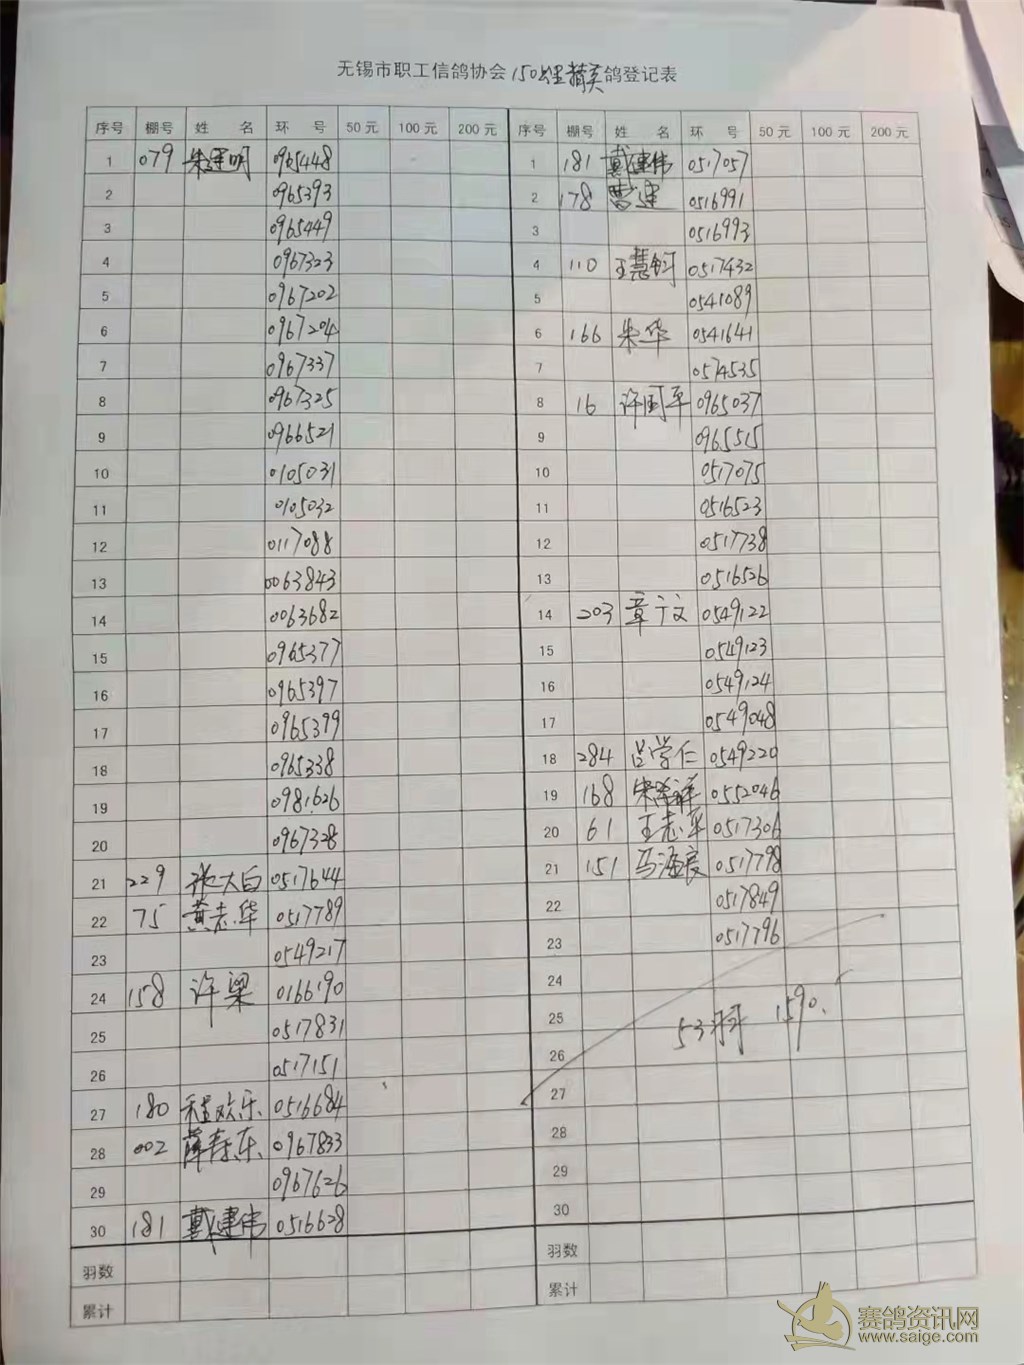 无锡市职工信鸽协会150公里精英鸽登记表
序号 棚号 姓 名 环 号 50元 100元 200元 序号 棚号 姓 名 环 号 50元 100元 200元
1 079 朱建明 0965448 1 181 戴建伟 0517057
2 0965393 2 178 曹建 0516991
3 0965449 3 0516993
4 0967323 4 110 王慧钶 0517432
5 0967202 5 0541089
6 0967204 6 166 朱华 0541641
7 0967337 7 0574535
8 0967325 8 16 许国平 0965037
9 0966521 9 0965515
10 0105031 10 0517075
11 0105032 11 0516523
12 0117088 12 0517738
13 0063843 13 0516526
14 0063682 14 203 章于文 0549122
15 0965377 15 0549123
16 0965397 16 0549124
17 0965399 17 0549048
18 0965338 18 284 吕学仁 0549220
19 0981626 19 168 0552046
20 0967328 20 61 王志华 0517306
21 229 张大白 0517644 21 151 马海良 0517798
22 75 黄志华 0517789 22 0517849
23 0549217 23 0517796
24 158 许梁 0166190 24
25 0517831 25 53羽 1590.
26 0517151 26
27 180 程欢乐 0516684 27
28 002 薛寿东 0967833 28
29 0967626 29
30 181 戴建伟 0516628 30
羽数 羽数
累计 累计
赛鸽资讯网
www.saige.com